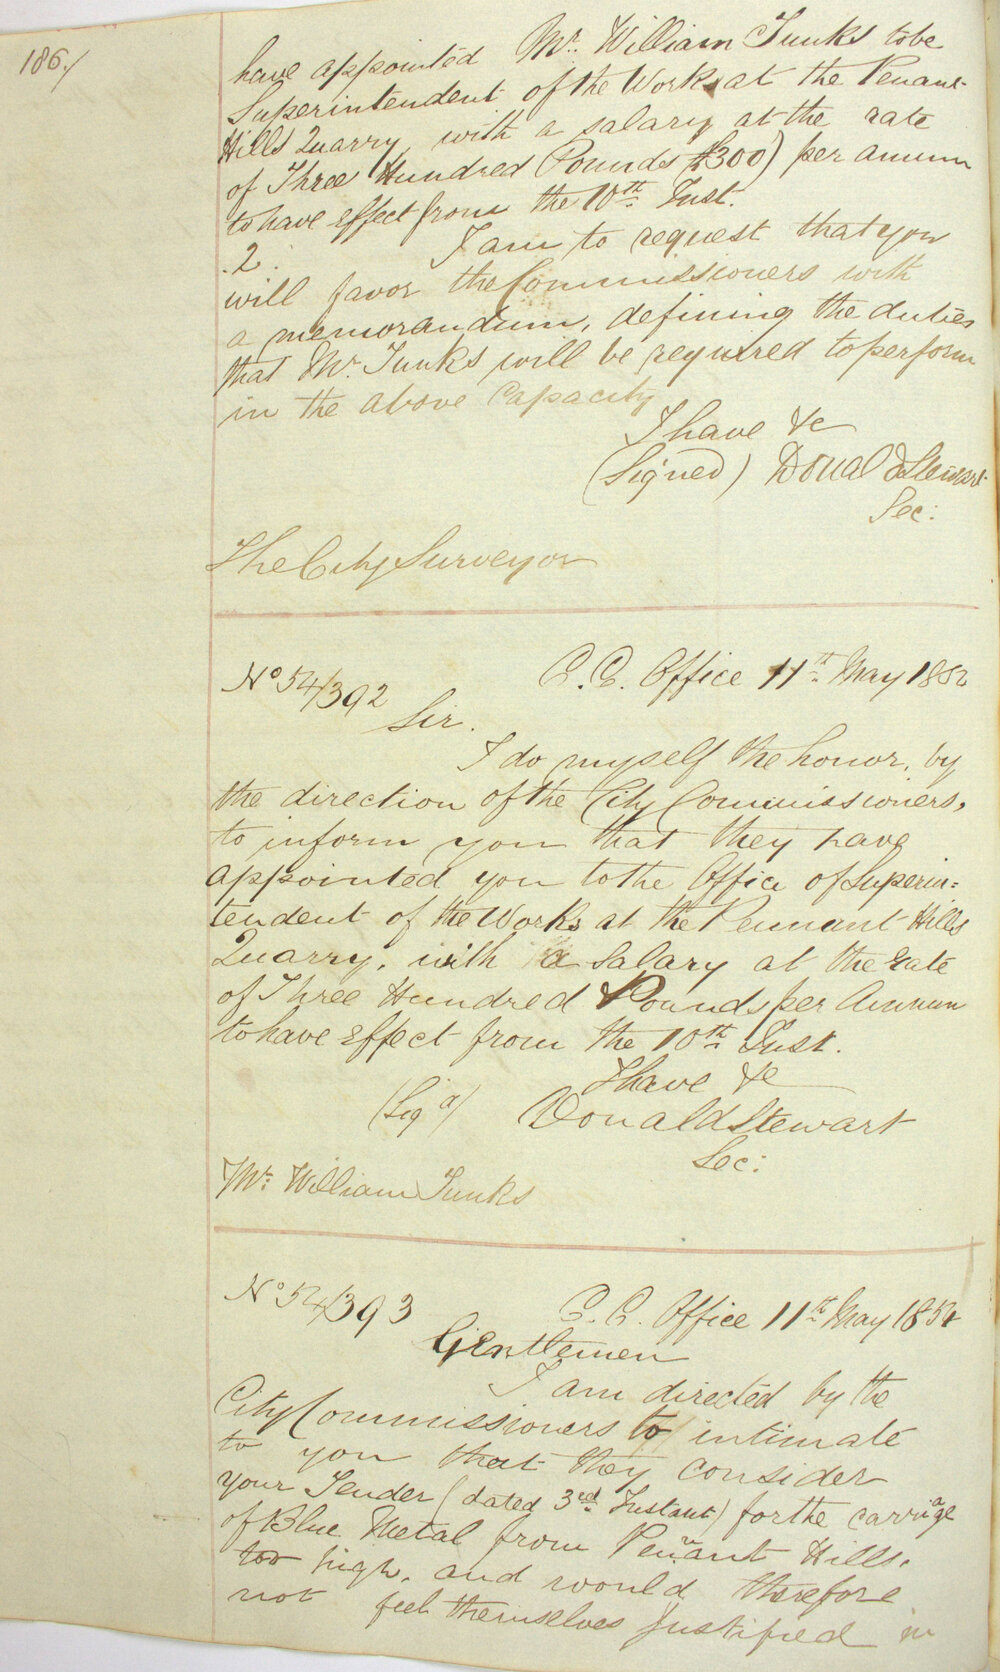 186./
have appointed Mr. William Tunks to be
Superintendent of the Works at the Penant
Hills Quarry with a salary at the rate
of Three Hundred Pounds (£300) per annum
to have effect from the 10th Inst.
.2. I am to request that you
will favor the Commissioners with
a memorandum, defining the duties
that Mr. Tunks will be required to perform
in the above capacity
I have &c
(Signed) Donald Stewart
Sec:
The City Surveyor
No 54/392 C.C. Office 11th May 1854
Sir.
I do myself the honor, by
the direction of the City Commissioners,
to inform you that they have
appointed you to the Office of Superin=
tendent of the Works at the Pennant Hills
Quarry, with a salary at the rate
of Three Hundred Pounds per Annum
to have effect from the 10th Inst.
I have &c
(Sigd) Donald Stewart
Sec:
Mr. William Tunks
No 54/393 C.C. Office 11th May 1854
Gentlemen
I am directed by the
City Commissioners to intimate
to you that they consider
your Tender (dated 3rd Instant) for the carriage
of Blue Metal from Pennant Hills,
too high, and would therefore
not feel themselves justified in